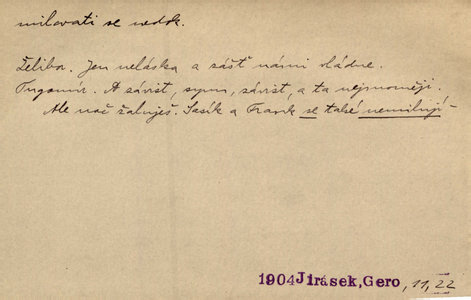 milovati se nedok.
Želibor. Jen neláska a zášť námi vládne.
Tugomír. A závist, synu, závist, a ta nejmocněji.
Ale nač žaluješ. Sasík a Frank se také nemilují –
1904 Jirásek, Gero, 11, 22